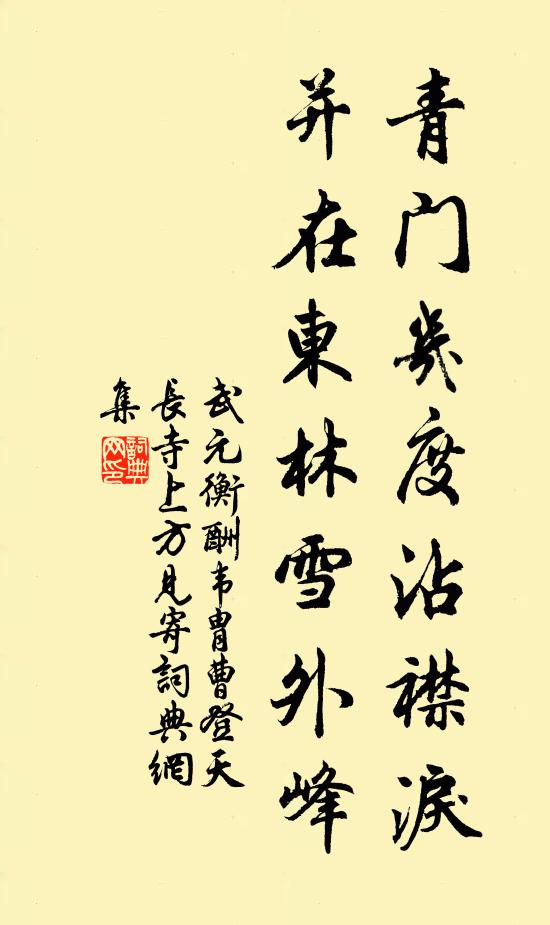 青門幾度沾襟淚
并在東林雪外峰
武元衡酬韦胄曹登天
長寺上方見寄詞典網
集
詞典
网印